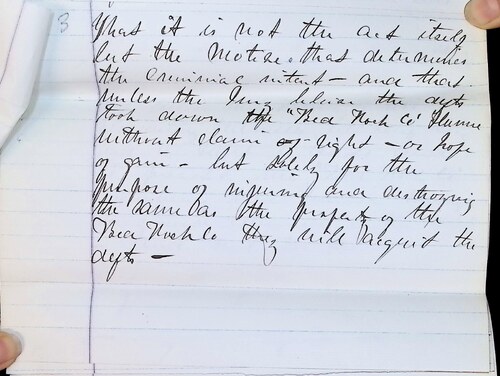 3
That it is not the act itself
but the motive that determines
the criminal intent - and that
unless the Jury believe the defts
took down the "Bed Rock Co" flume
without claim of right - or hope
of gain - but solely for the
purpose of injuring and destroying
the same as the property of the
Bed Rock Co they will acquit the
defts -